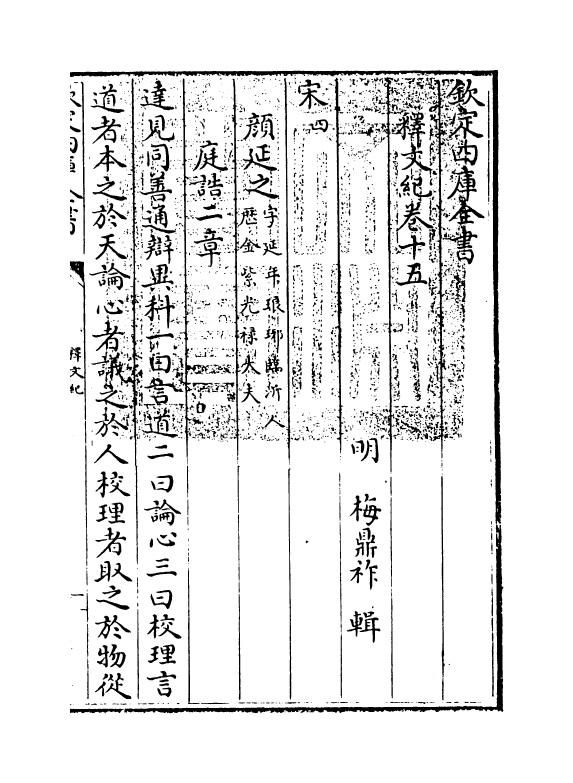 欽定四庫全書
釋文紀卷十五
明 梅鼎祚 輯
宋四
顔延之字延年琅琊臨沂人
歴金紫光禄大夫
庭誥二章
達見同善通辯異科一曰言道二曰論心三曰校理言
道者本之於天論心者議之於人校理者取之於物從
欽定四庫全書
釋文紀
一